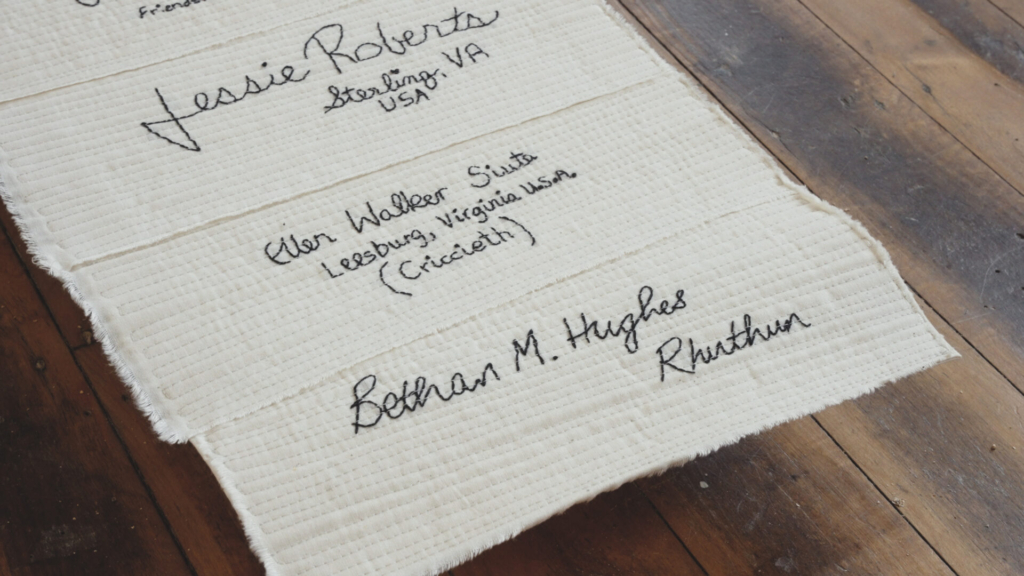 Jessie Roberts
Sterling, VA
USA
Ellen Walker Siuta
Leesburg, Virginia U.S.A.
(Criccieth)
Bethan M. Hughes
Rhuthun